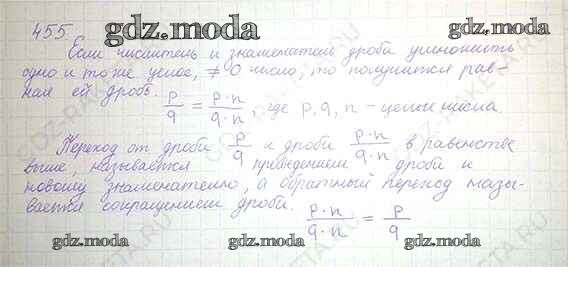 gdz.moda
gdz.moda
455.
Если числитель и знаменатель дроби умножить
одно и то же целое, ≠ 0 число, то получится рав-
ная ей дробь.
p/q = p·n/q·n, где p, q, n - целые числа.
Переход от дроби p/q к дроби p·n/q·n в равенстве
выше, называется приведением дроби к
новому знаменателю, а обратный переход назы-
вается сокращением дроби.
p·n/q·n = p/q
gdz.moda
gdz.moda
gdz.moda